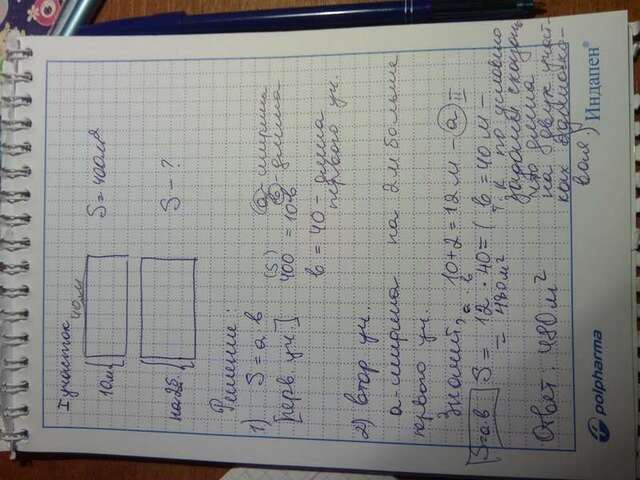 I участок
40м
10м
S = 400м²
на 2б
S - ?
Решение:
1) S = a b
[перв. уч.]
(S)
400 = 10·в
a - ширина
в - длина
в = 40 - длина
первого уч.
2) втор уч.
а - ширина на 2м больше
первого уч.
Значит, 10+2 = 12 м - а II
S=ав
а в
S = 12 · 40 = (в = 40м -
= 480м²
т.к по условию
задачи сказано
что длина
на двух участ-
ках одинако-
вая)
Ответ: 480 м²
polpharma
Индапен®